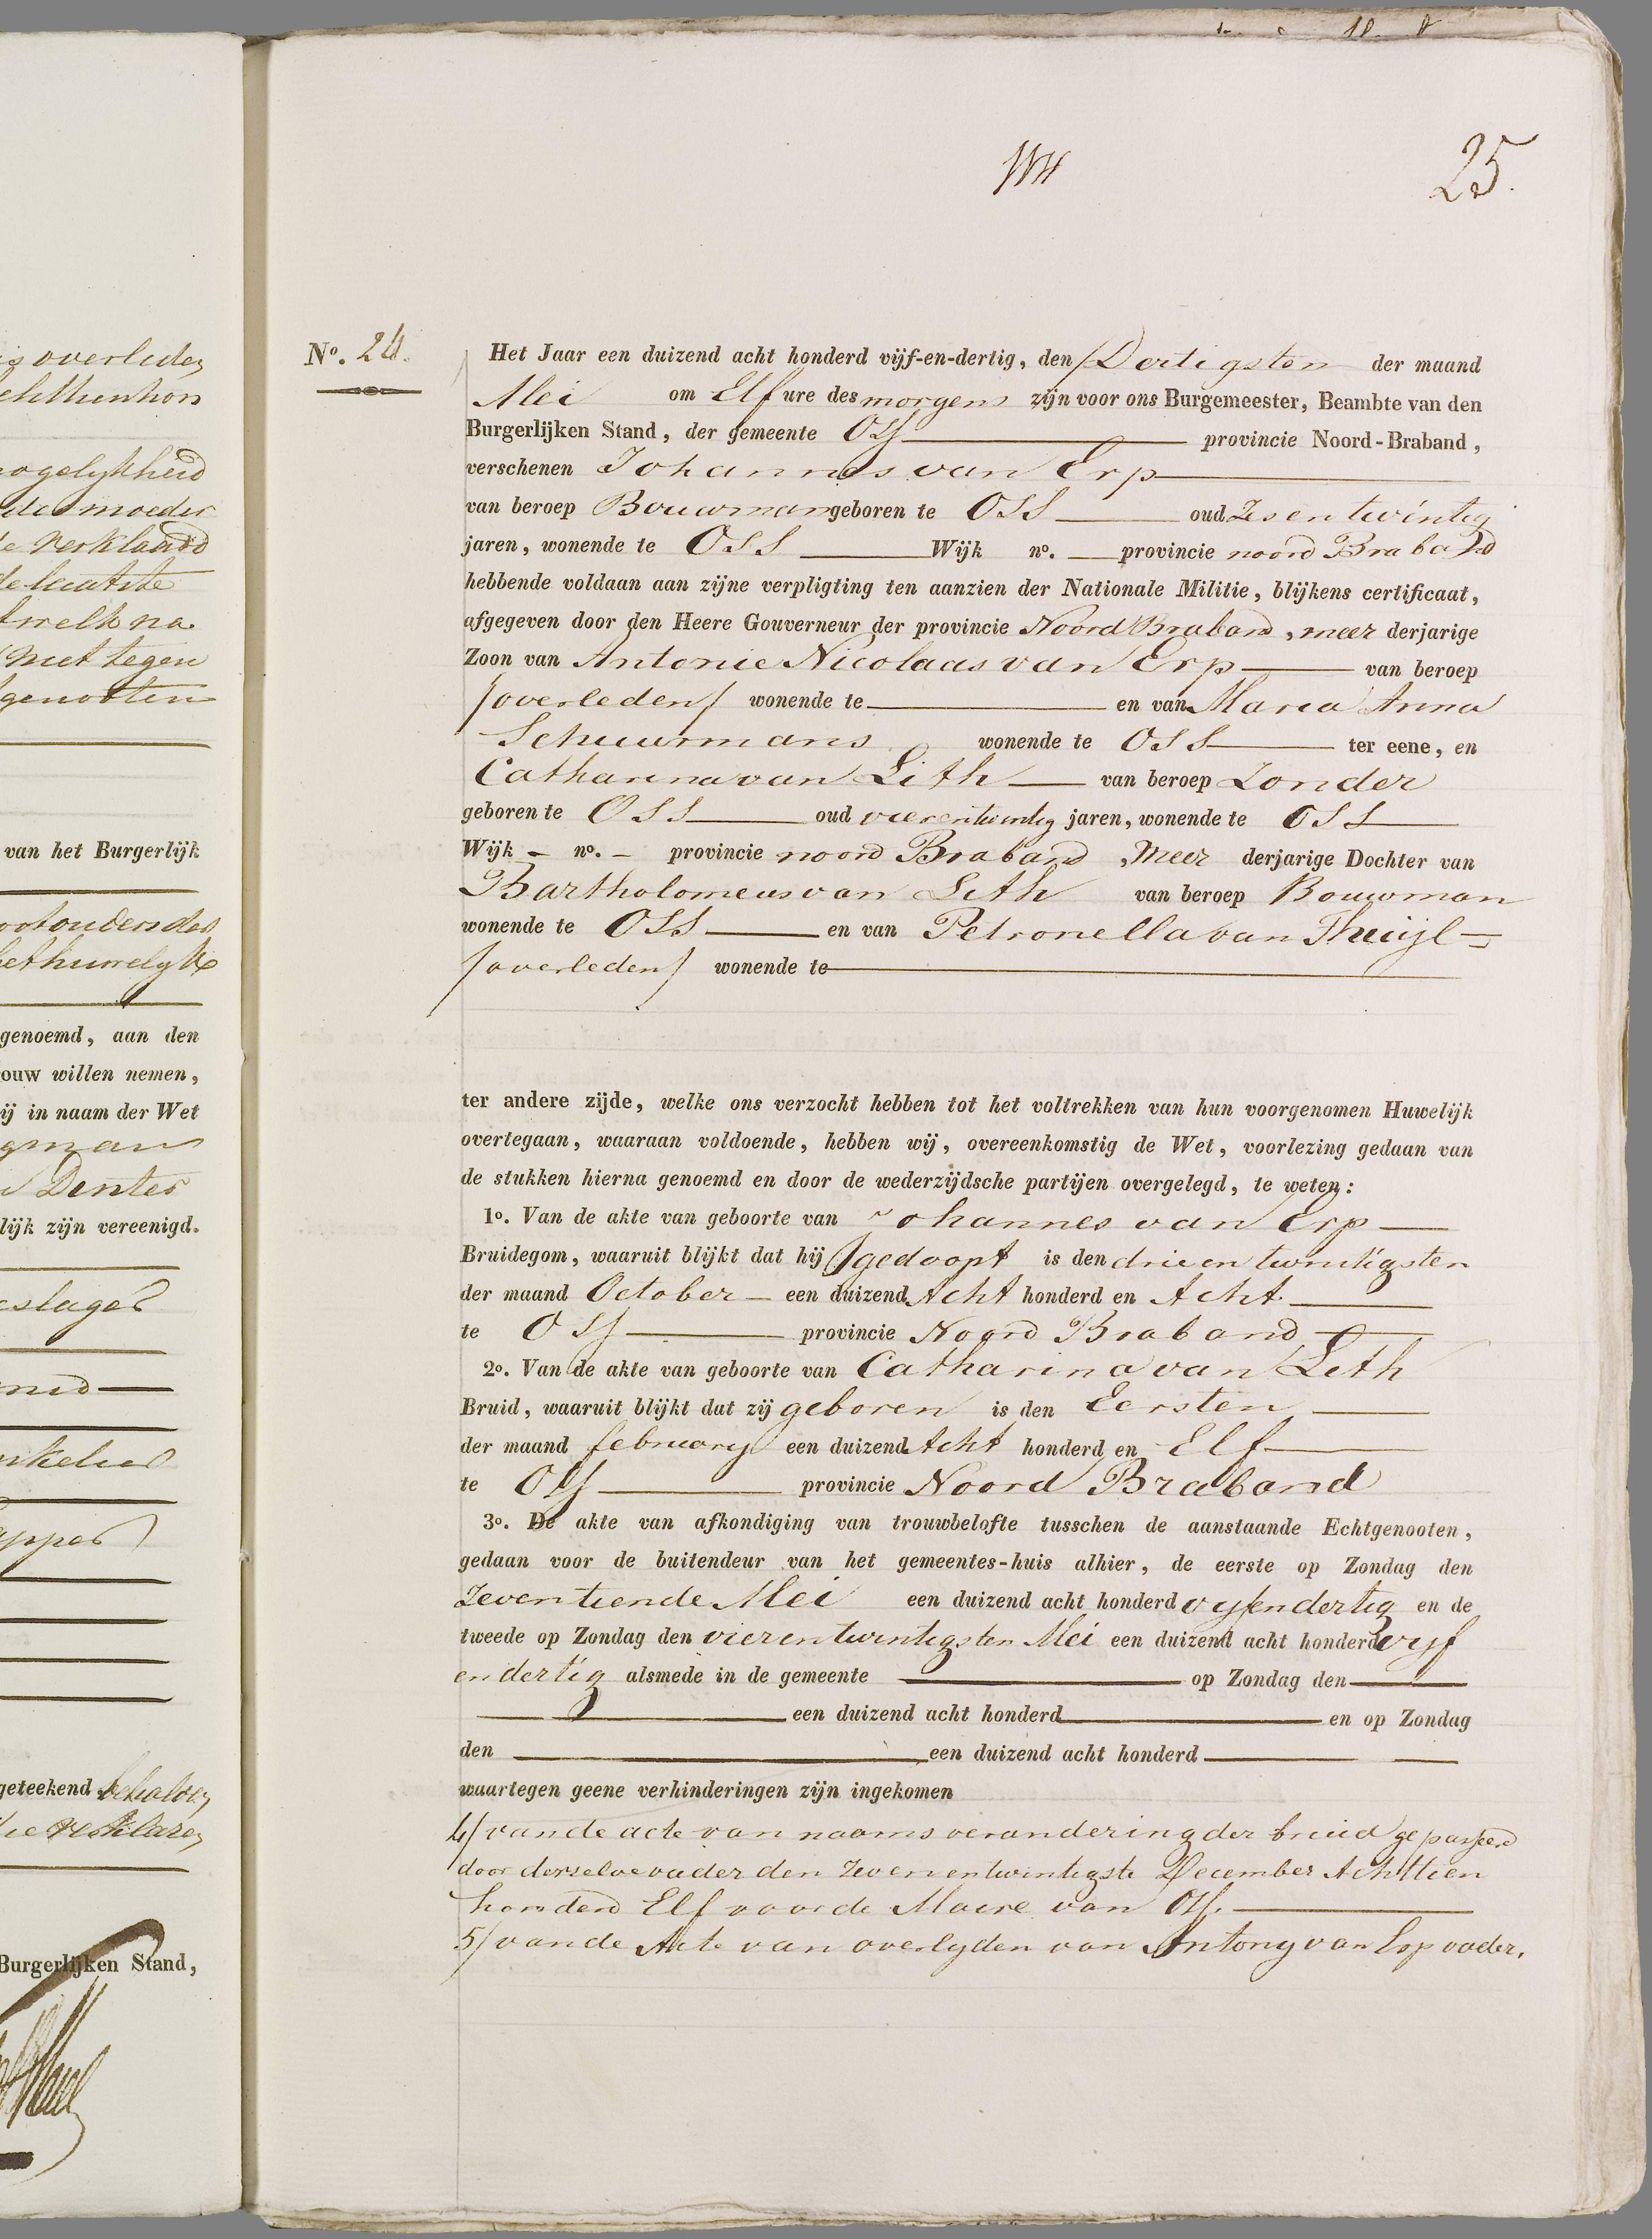 is overleden
mogelykheid
de moeder
de verklaard
de laatste
twelk na
met tegen
genooten
van het Burgerlijk
ootouders des
het huwelyk
genoemd, aan den
ouw willen nemen,
ij in naam der Wet
gman
lijk zijn vereenigd.
eslager
nkelier
apper
geteekend behalve
verklaren
Burgerlijken Stand,
25.
No. 24.
Het Jaar een duizend acht honderd vijf-en-dertig, den Dertigsten der maand
Mei om Elf ure des morgens zijn voor ons Burgemeester, Beambte van den
Burgerlijken Stand, der gemeente Oss provincie Noord-Braband,
verschenen Johannes van Erp
van beroep Bouwman geboren te Oss oud Zesentwintig
jaren, wonende te Oss Wijk no. — provincie noord Braband
hebbende voldaan aan zijne verpligting ten aanzien der Nationale Militie, blijkens certificaat,
afgegeven door den Heere Gouverneur der provincie Noord Braband, meer derjarige
Zoon van Antonie Nicolaas van Erp van beroep
/overleden/ wonende te — en van Maria Anna
Schuurmans wonende te Oss ter eene, en
Catharina van Lith van beroep Zonder
geboren te Oss oud vierentwintig jaren, wonende te Oss
Wijk — no. — provincie noord Braband, Meer derjarige Dochter van
Bartholomeus van Lith van beroep Bouwman
wonende te Oss en van Petronella van Thuijl
/overleden/ wonende te —
ter andere zijde, welke ons verzocht hebben tot het voltrekken van hun voorgenomen Huwelijk
overtegaan, waaraan voldoende, hebben wij, overeenkomstig de Wet, voorlezing gedaan van
de stukken hierna genoemd en door de wederzijdsche partijen overgelegd, te weten:
1o. Van de akte van geboorte van Johannes van Erp
Bruidegom, waaruit blijkt dat hij gedoopt is den drieentwintigsten
der maand October een duizend Acht honderd en Acht
te Oss provincie Noord Braband
2o. Van de akte van geboorte van Catharina van Lith
Bruid, waaruit blijkt dat zij geboren is den Eersten
der maand february een duizend Acht honderd en Elf
te Oss provincie Noord Braband
3o. De akte van afkondiging van trouwbelofte tusschen de aanstaande Echtgenooten,
gedaan voor de buitendeur van het gemeentes-huis alhier, de eerste op Zondag den
Zeventiende Mei een duizend acht honderd vyfendertig en de
tweede op Zondag den vierentwintigsten Mei een duizend acht honderd vyf
endertig alsmede in de gemeente — op Zondag den —
— een duizend acht honderd — en op Zondag
den — een duizend acht honderd —
waartegen geene verhinderingen zijn ingekomen
4/ van de acte van naams verandering der bruid gepasseerd
door derselve vader den Zevenentwintigste December Achttien
honderd Elf voor de Maire van Oss.
5/ van de Akte van overlyden van Antony van Erp vader.